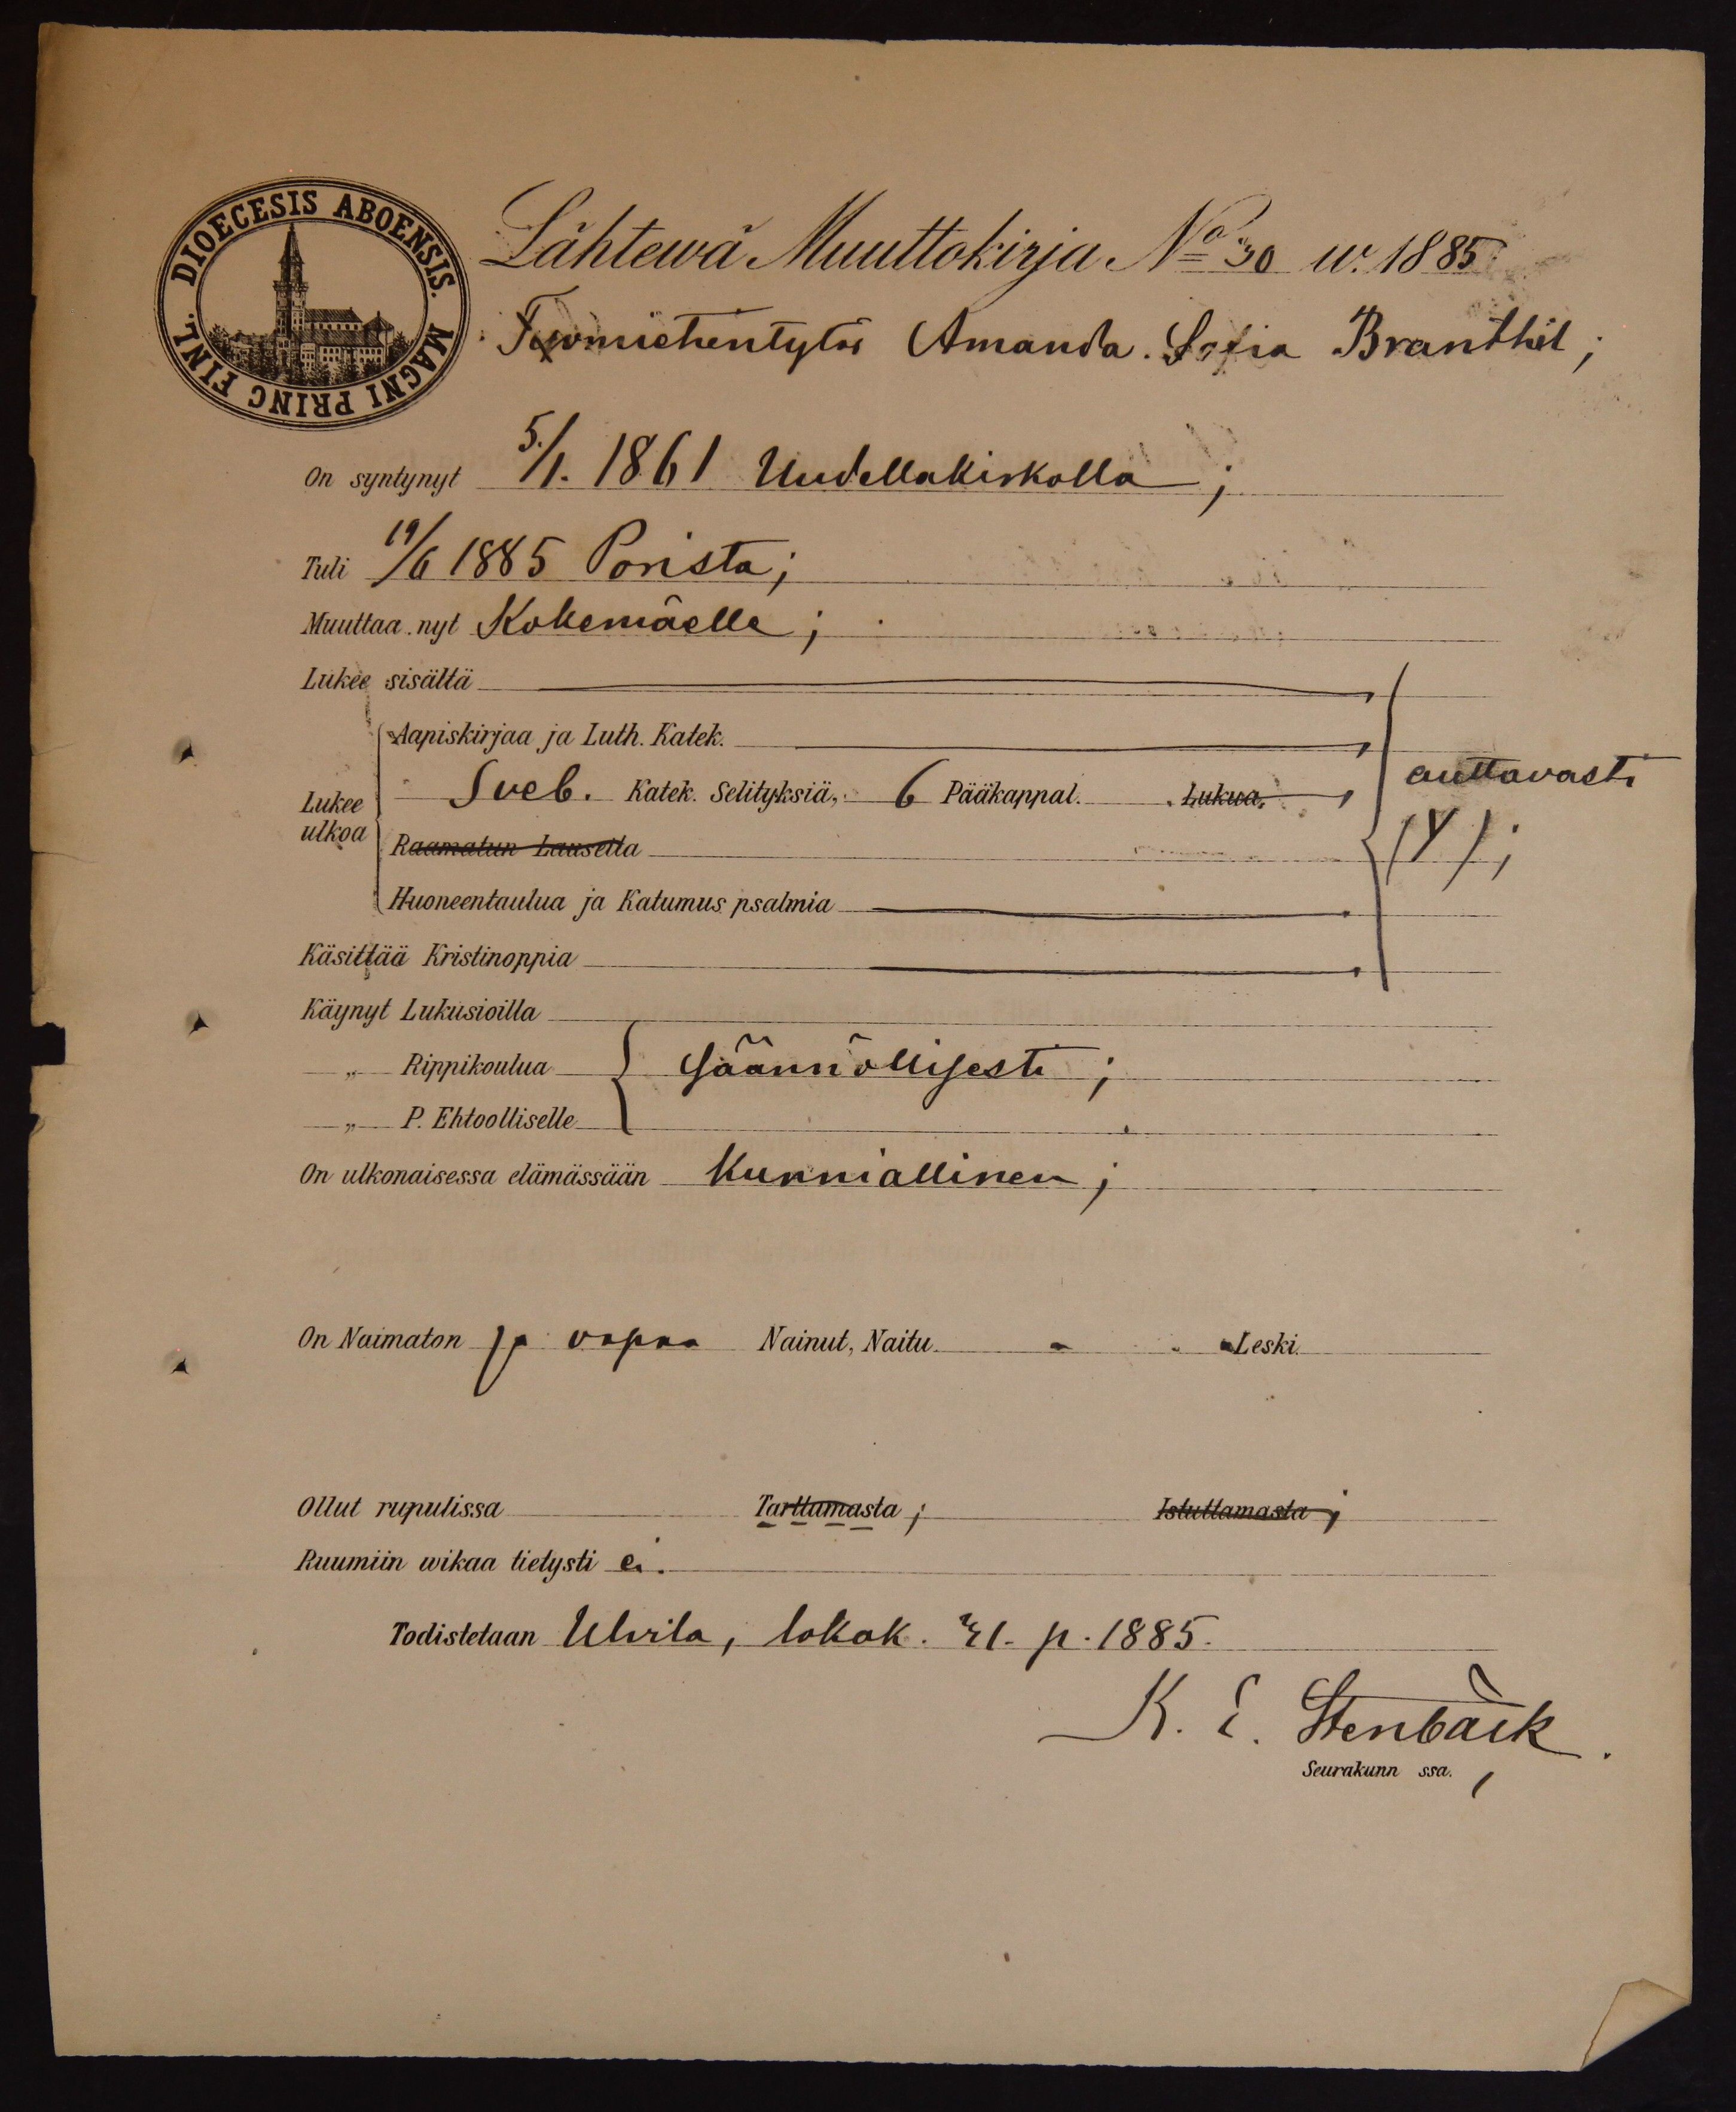 DIOECESIS ABOENSIS. MAGNI PRINC FINL.
Lähtewä Muuttokirja No 30 w. 1885
Amanda Sofia Branthil;
On syntynyt 5./1. 1861 Uudellakirkolla;
Tuli 19/6 1885 Porista;
Muuttaa nyt Kokemäelle;
Lukee sisältä
Aapiskirjaa ja Luth. Katek.
Lukee ulkoa
Sveb. Katek. Selityksiä, 6 Pääkappal. Lukua,
auttavasti
(Y);
Raamatun Lauseita
Huoneentaulua ja Katumus psalmia
Käsittää Kristinoppia
Käynyt Lukusioilla
„ Rippikoulua
säännöllisesti;
„ P. Ehtoolliselle
On ulkonaisessa elämässään kunniallinen;
On Naimaton ja vapaa Nainut, Naitu - Leski
Ollut rupulissa Tarttumasta; Istuttamasta;
Ruumiin wikaa tietysti ei.
Todistetaan Ulvila, lokak. 31. p. 1885.
K. E. Stenbäck.
Seurakunn ssa.